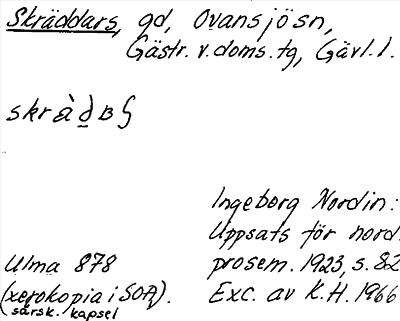 Skräddars, gd, Ovansjösn,
Gästr. v. doms. tg, Gävl. l.
Ingeborg Nordin:
Uppsats för nord.
prosem. 1923, s. 82
Exc. av K. H. 1966
Ulma 878
(xerokopia i SOA).
särsk. kapsel